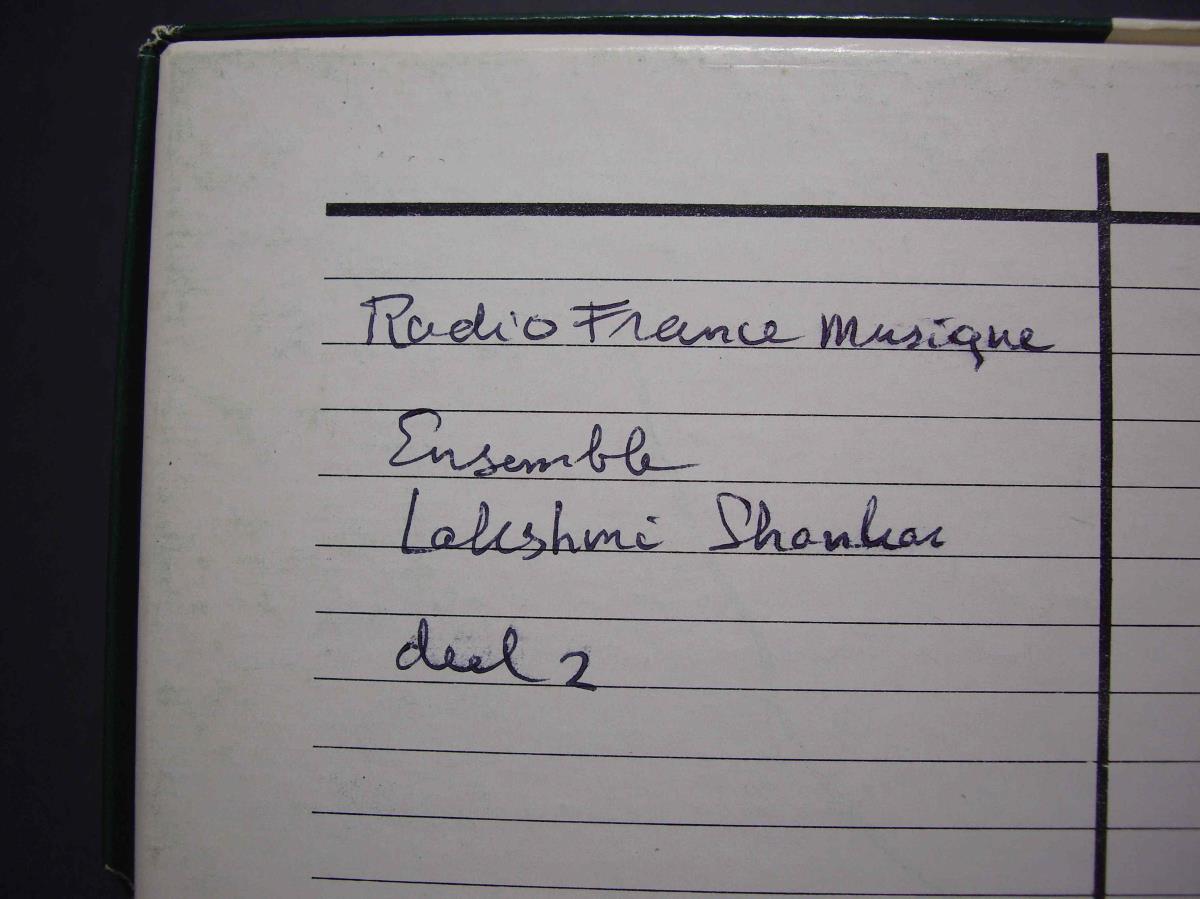 Radio France Musique
Ensemble
Lakshmi Shankar
deel 2